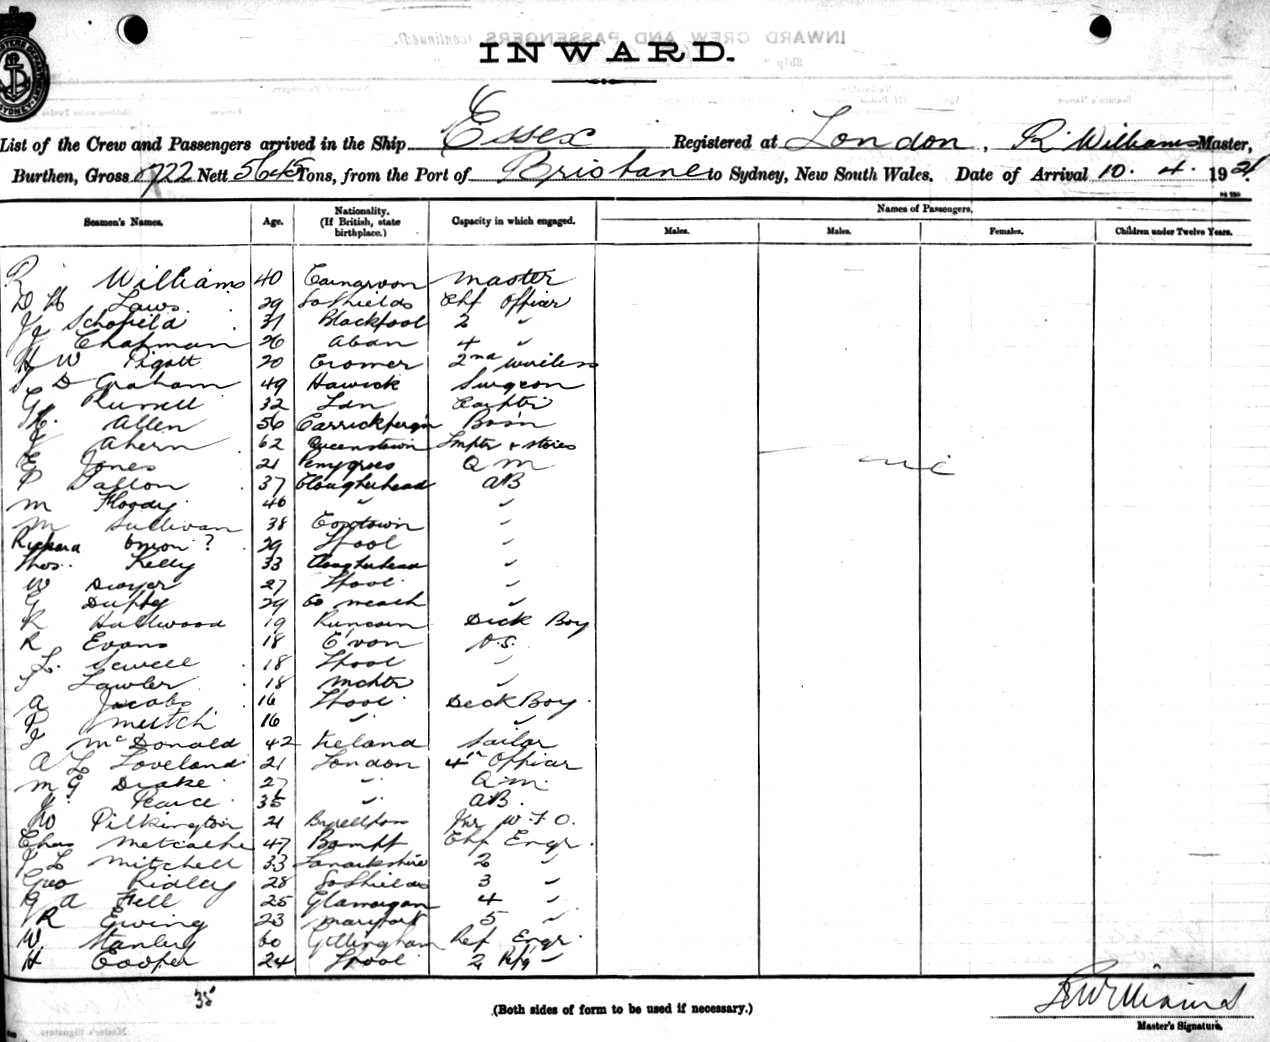 INWARD.
List of the Crew and Passengers arrived in the Ship Essex Registered at London, R Williams Master,
Burthen, Gross Nett 5645 Tons, from the Port of Brisbane to Sydney, New South Wales, Date of Arrival 10. 4. 1921.
Names of Passengers.
Seamen's Names. Age. Nationality. (If British, state birthplace.) Capacity in which engaged. Males. Males. Females. Children under Twelve Years.
R Williams 40 Carnarvon Master
D H Laws 29 So Shields Chf Officer
Schofield 31 Blackpool 2 "
Chapman 26 4 "
H W Pigott 20 Cromer 2nd Wireless
D Graham 49 Hawick Surgeon
G Russell 32 Ldn Carptr
Allen 56 Carrickfergn Bosn
J Ahern 62 Queenstown Lmptr & Stores
E Jones 21 Penygroes Q M
P Dalton 37 Clougherhead AB
M Floody 46 " "
M Sullivan 38 "
Richard ? 29 Lpool "
Thos. Kelly 33 Clougherhead "
W Dwyer 27 Lpool "
G Duffy 29 Co Meath "
R Hallwood 19 Runcorn Deck Boy
R Evans 18 C'von O.S.
L. Sewell 18 Lpool "
Lawler 18 Mchtr "
A Jacobs 16 Lpool Deck Boy
P Mutch 16 " "
J McDonald 42 Ireland Sailor
A L Loveland 21 London 4th Officer
M G Drake 27 " Q.M.
Pearce 35 " AB.
W Pilkington 21 Jnr W T O.
Chas Metcalfe 47 Banff Chf Engr.
L Mitchell 33 Lanarkshire 2 "
Geo Ridley 28 So Shields 3 "
G A Fell 25 Glamorgan 4 "
R Ewing 23 Maryport 5 "
W. Stanley 60 Gillingham Ref Engr.
H Cooper 24 Lpool 2 Rfg "
35
(Both sides of form to be used if necessary.)
R Williams
Master's Signature.